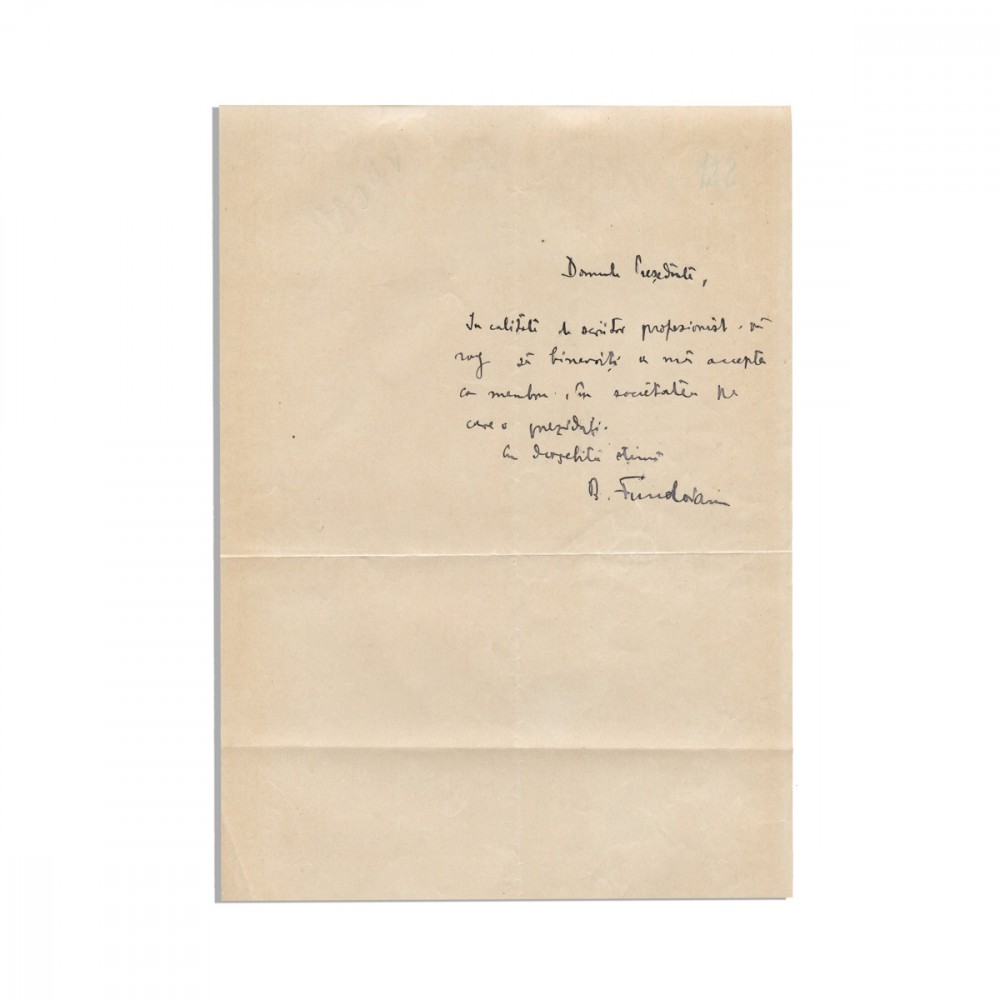 Domnule Președinte,
In calitate de scriitor profesionist, vă
rog să binevoiți a mă accepta
ca membru, în societatea pe
care o prezidați.
Cu deosebită stimă
B. Fundoianu